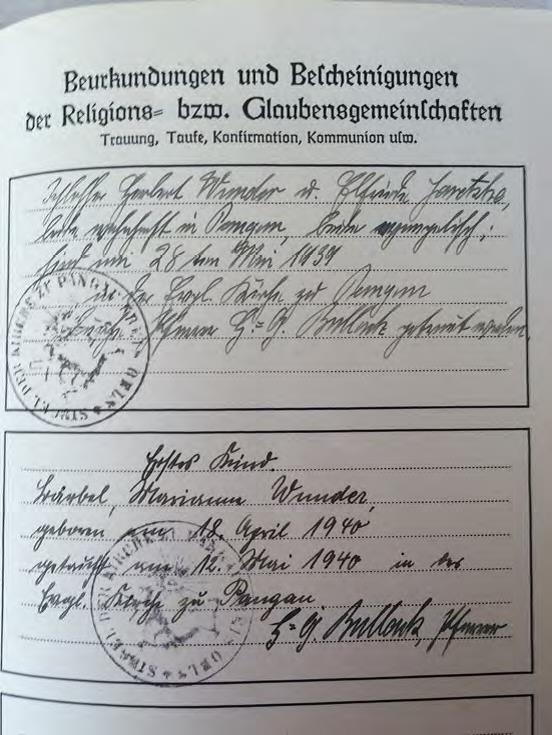 Beurkundungen und Bescheinigungen
der Religions= bzw. Glaubensgemeinschaften
Trauung, Taufe, Konfirmation, Kommunion usw.
Schlosser Herbert Wunder u. Elfriede
beide wohnhaft in Pangau, beide evangelisch;
sind am 28ten Mai 1939
in der Evgl. Kirche zu Pangau
durch Pfarrer H.=G. Bullank getraut worden.
SIEGEL DER KIRCHE ZU PANGAU KREIS OELS
Erstes Kind.
Bärbel, Marianne Wunder,
geboren am 18. April 1940
getauft am 12. Mai 1940 in der
Evgl. Kirche zu Pangau.
H.=G. Bullank, Pfarrer
SIEGEL DER KIRCHE OELS